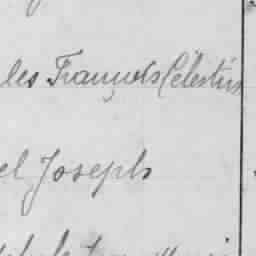 les François Célestin
el Joseph